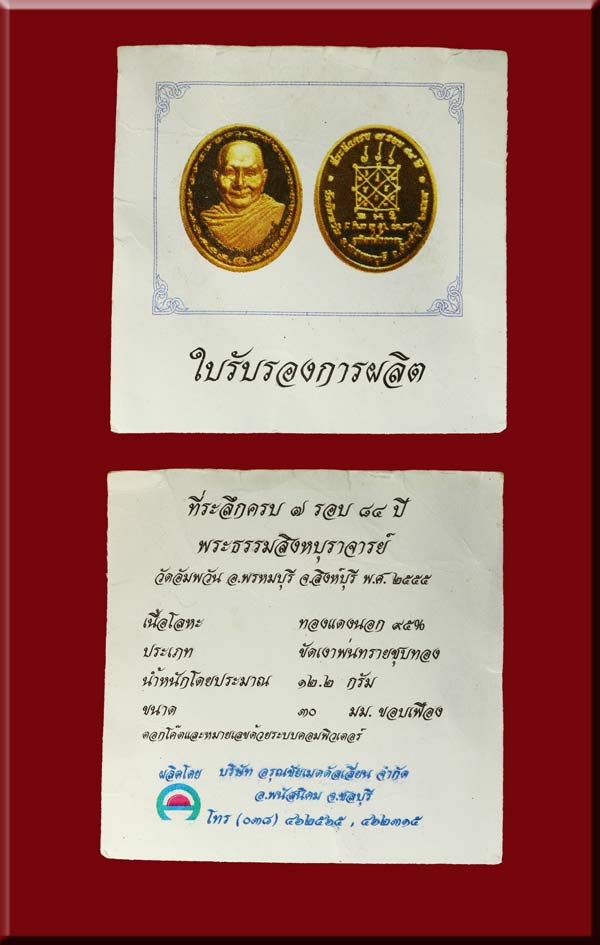 ใบรับรองการผลิต
ที่ระลึกครบ ๗ รอบ ๘๔ ปี
พระธรรมสิงหบุราจารย์
วัดอัมพวัน อ.พรหมบุรี จ.สิงห์บุรี พ.ศ. ๒๕๕๕
เนื้อโลหะ ทองแดงนอก ๙๕%
ประเภท ขัดเงาพ่นทรายชุบทอง
น้ำหนักโดยประมาณ ๑๒.๒ กรัม
ขนาด ๓๐ มม. ขอบเฟือง
ตอกโค๊ตและหมายเลขด้วยระบบคอมพิวเตอร์
ผลิตโดย บริษัท อรุณชัยเมตตัลเลี่ยน จำกัด
อ.พนัสนิคม จ.ชลบุรี
โทร (๐๓๘) ๔๖๒๕๖๕ , ๔๖๒๓๑๕